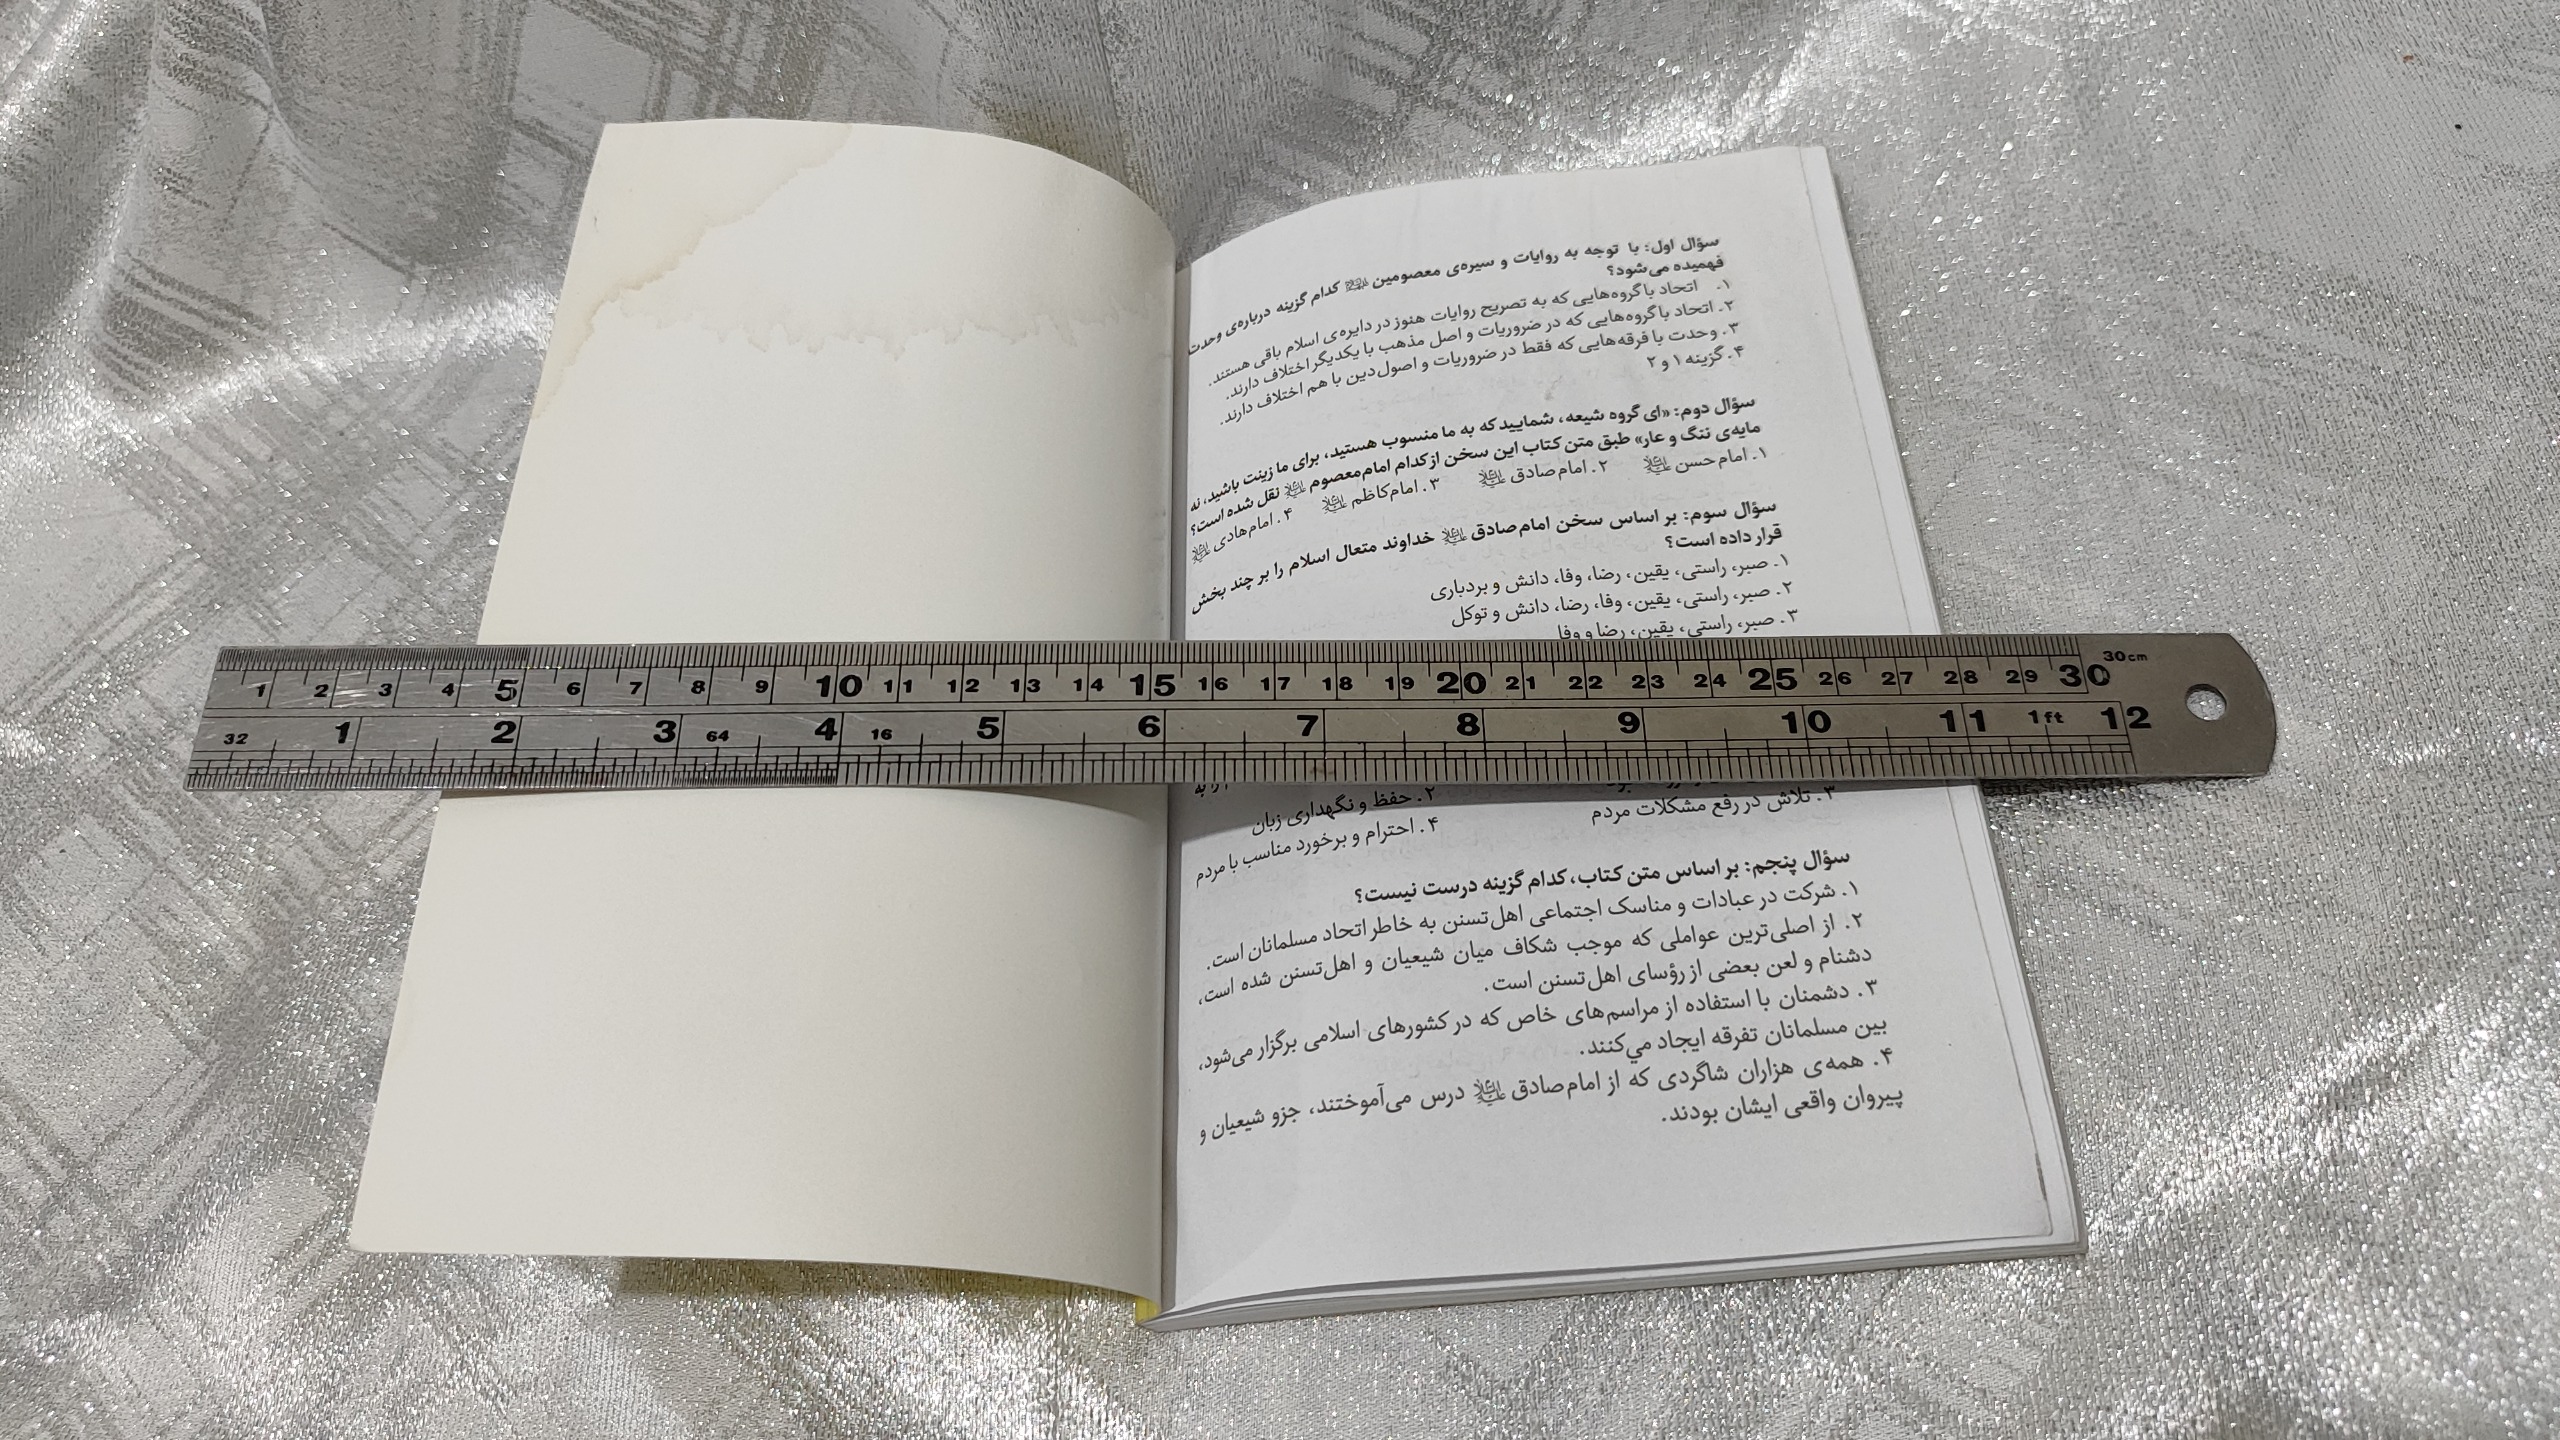 سؤال اول: با توجه به روایات و سیره‌ی معصومین کدام گزینه درباره‌ی وحدت
فهمیده می‌شود؟
۱. اتحاد با گروه‌هایی که به تصریح روایات هنوز در دایره‌ی اسلام باقی هستند.
۲. اتحاد با گروه‌هایی که در ضروریات و اصل مذهب با یکدیگر اختلاف دارند.
۳. وحدت با فرقه‌هایی که فقط در ضروریات و اصول دین با هم اختلاف دارند.
۴. گزینه ۱ و ۲
سؤال دوم: «ای گروه شیعه، شمایید که به ما منسوب هستید، برای ما زینت باشید، نه
مایه‌ی ننگ و عار» طبق متن کتاب این سخن از کدام امام معصوم نقل شده است؟
۱. امام حسن ۲. امام صادق ۳. امام کاظم ۴. امام هادی
سؤال سوم: بر اساس سخن امام صادق خداوند متعال اسلام را بر چند بخش
قرار داده است؟
۱. صبر، راستی، یقین، رضا، وفا، دانش و بردباری
۲. صبر، راستی، یقین، وفا، رضا، دانش و توکل
۳. صبر، راستی، یقین، رضا و وفا
30cm
1 2 3 4 5 6 7 8 9 10 11 12 13 14 15 16 17 18 19 20 21 22 23 24 25 26 27 28 29 30
1 2 3 4 5 6 7 8 9 10 11 1ft 12
32 64 16
را به
۲. حفظ و نگهداری زبان
۳. تلاش در رفع مشکلات مردم ۴. احترام و برخورد مناسب با مردم
سؤال پنجم: بر اساس متن کتاب، کدام گزینه درست نیست؟
۱. شرکت در عبادات و مناسک اجتماعی اهل تسنن به خاطر اتحاد مسلمانان است.
۲. از اصلی‌ترین عواملی که موجب شکاف میان شیعیان و اهل تسنن شده است،
دشنام و لعن بعضی از رؤسای اهل تسنن است.
۳. دشمنان با استفاده از مراسم‌های خاص که در کشورهای اسلامی برگزار می‌شود،
بین مسلمانان تفرقه ایجاد می‌کنند.
۴. همه‌ی هزاران شاگردی که از امام صادق درس می‌آموختند، جزو شیعیان و
پیروان واقعی ایشان بودند.